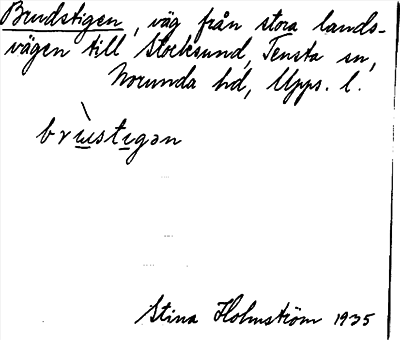 Brudstigen, väg från stora lands-
vägen till Stocksund, Tensta sn,
Norunda hd, Upps. l.
brùstigən
Stina Holmström 1935